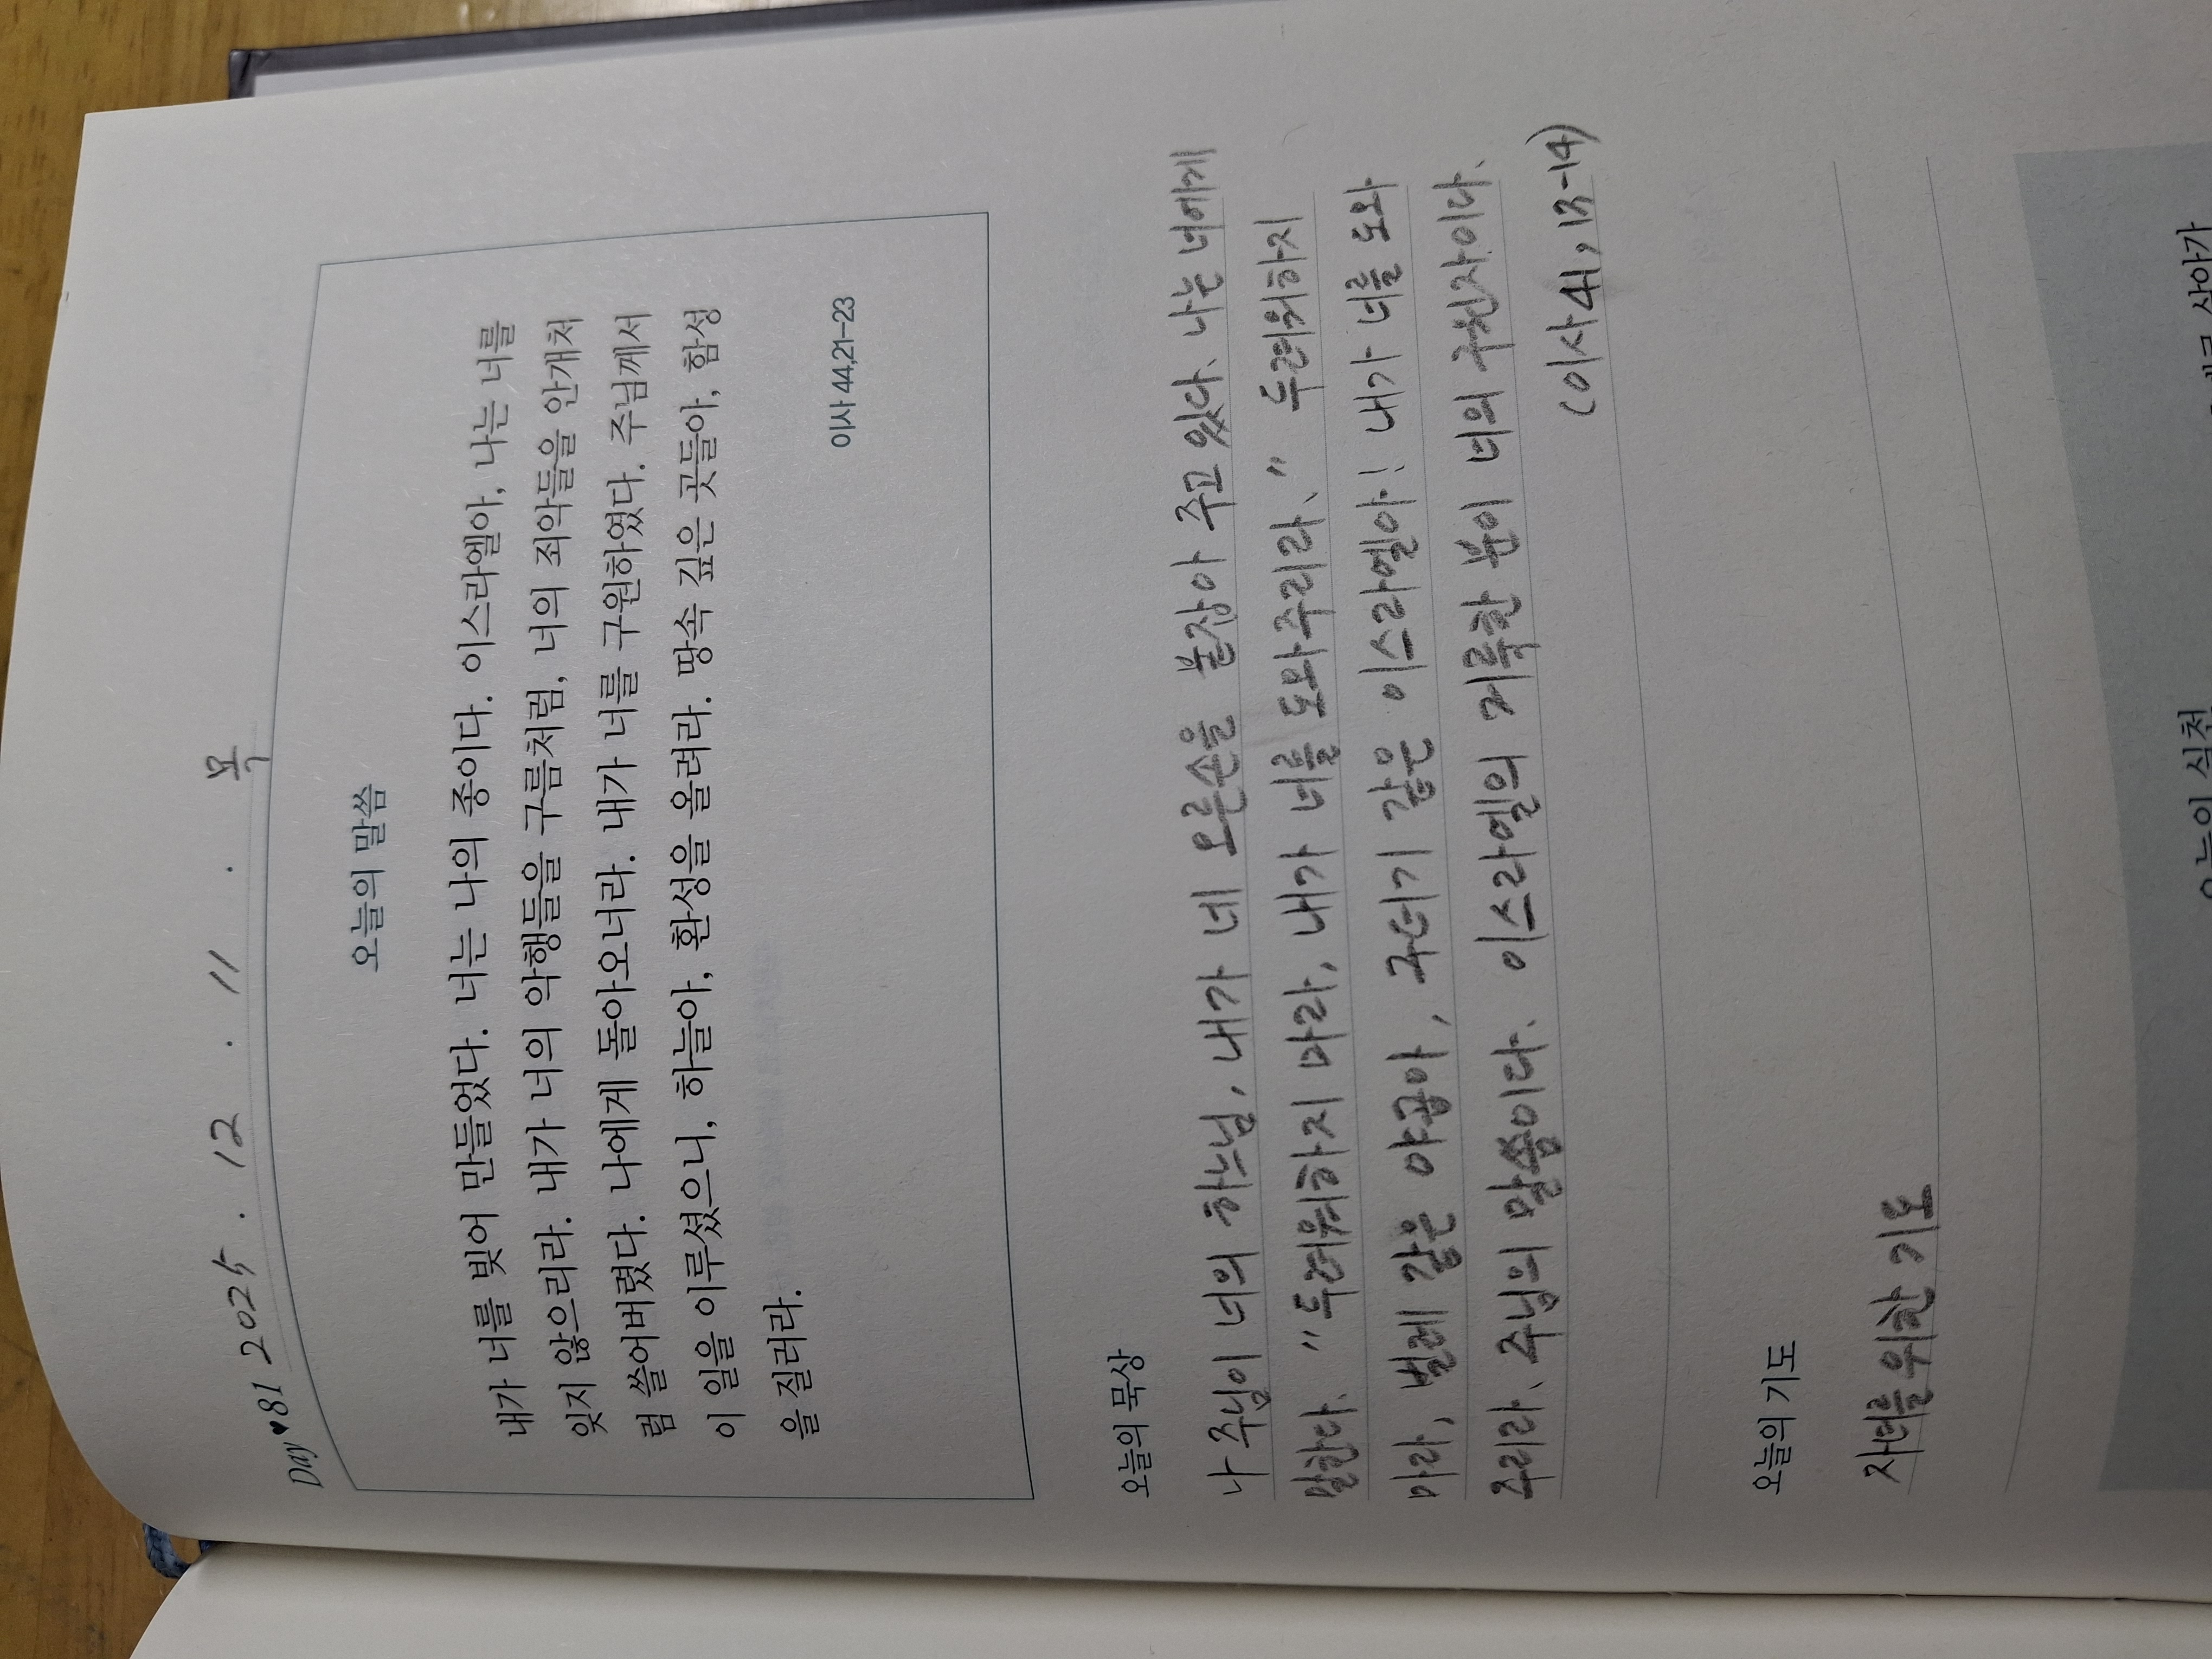 Day♥81 2025. 12. 11. 목
오늘의 말씀
내가 너를 빚어 만들었다. 너는 나의 종이다. 이스라엘아, 나는 너를
잊지 않으리라. 내가 너의 악행들을 구름처럼, 너의 죄악들을 안개처
럼 쓸어버렸다. 나에게 돌아오너라. 내가 너를 구원하였다. 주님께서
이 일을 이루셨으니, 하늘아, 환성을 올려라. 땅속 깊은 곳들아, 함성
을 질러라.
이사 44,21-23
오늘의 묵상
나 주님이 너의 하느님, 내가 네 오른손을 붙잡아 주고 있다. 나는 너에게
말한다. "두려워하지 마라, 내가 너를 도와주리라." 두려워하지
마라, 벌레 같은 야곱아, 구더기 같은 이스라엘아! 내가 너를 도와
주리라. 주님의 말씀이다. 이스라엘의 거룩한 분이 너의 구원자이다.
(이사 41, 13-14)
오늘의 기도
자녀를 위한 기도
오늘의 실천